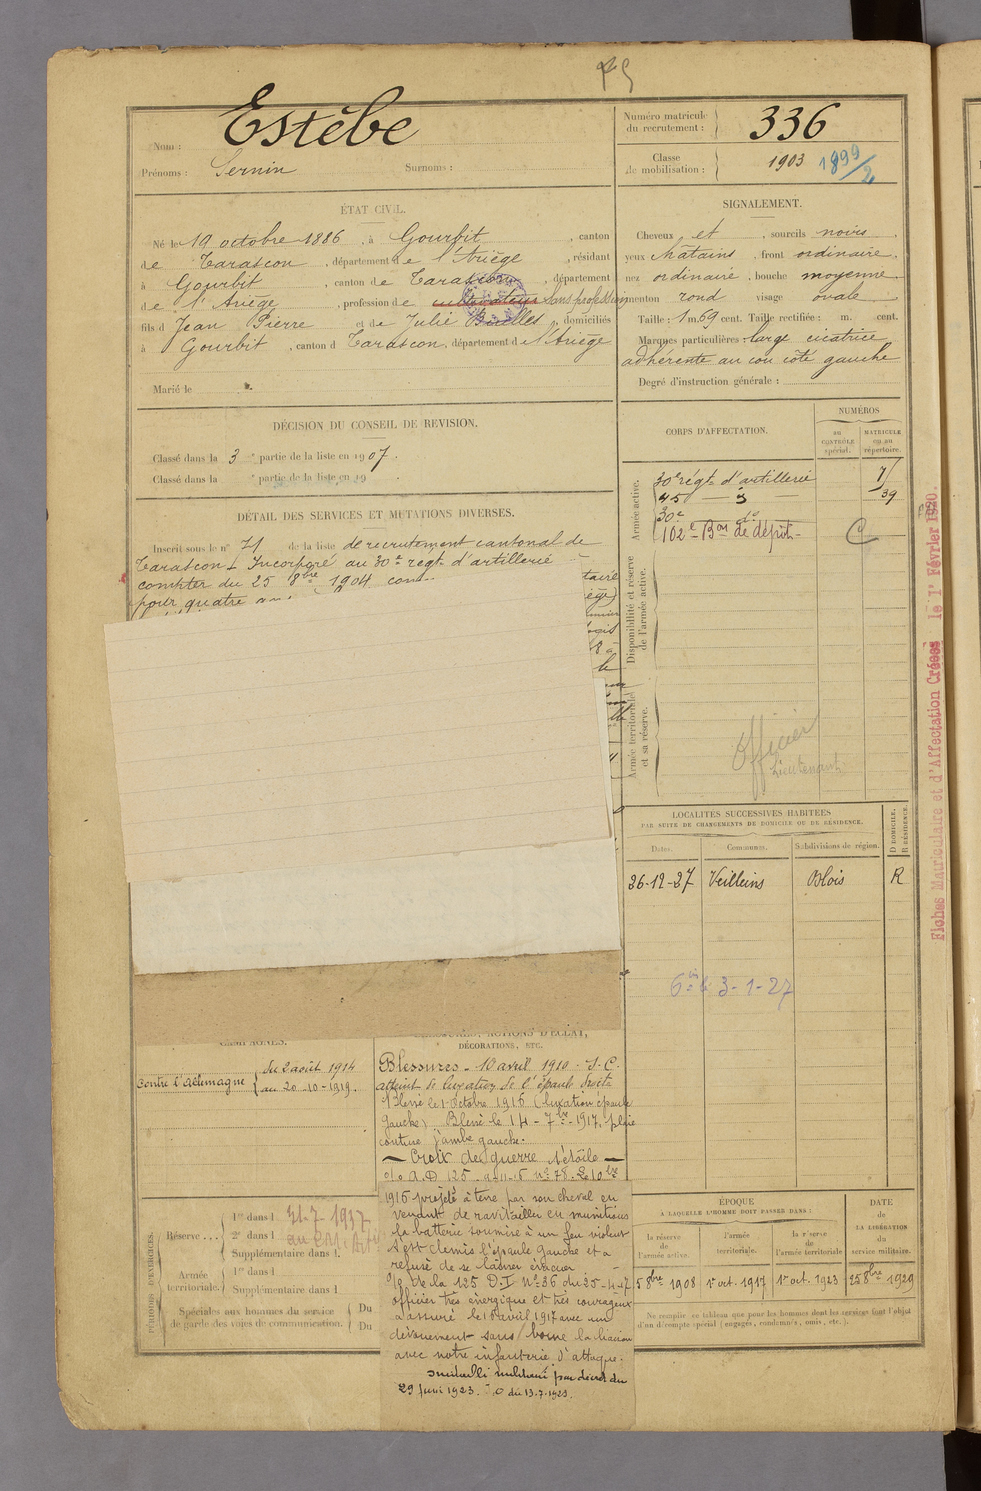 Nom : Estèbe
Prénoms : Sernin Surnoms :
Numéro matricule du recrutement : 336
Classe de mobilisation : 1903 1899/2
ÉTAT CIVIL.
Né le 19 octobre 1886, à Gourbit, canton
de Tarascon, département de l'Ariège, résidant
à Gourbit, canton de Tarascon, département
de l'Ariège, profession de cultivateur sans profession
fils d Jean Pierre et de Julie, domiciliés
à Gourbit, canton d Tarascon, département d l'Ariège
Marié le
SIGNALEMENT.
Cheveux et, sourcils noirs,
yeux chatains, front ordinaire,
nez ordinaire, bouche moyenne
menton rond visage ovale
Taille : 1 m. 69 cent. Taille rectifiée : m. cent.
Marques particulières : large cicatrice
adhérente au cou côté gauche
Degré d'instruction générale :
DÉCISION DU CONSEIL DE REVISION.
Classé dans la 3e partie de la liste en 1907.
Classé dans la e partie de la liste en 19
DÉTAIL DES SERVICES ET MUTATIONS DIVERSES.
Inscrit sous le n° 71 de la liste de recrutement cantonal de
Tarascon. Incorporé au 30e régt d'artillerie
compter du 25 8bre 1904
pour quatre
CORPS D'AFFECTATION.
NUMÉROS
au CONTRÔLE spécial.
MATRICULE ou au répertoire.
Armée active.
30e régt d'artillerie 7/39
45
30e do
102e Bon de dépôt C
Disponibilité et réserve de l'armée active.
Armée territoriale et sa réserve.
Officier
Lieutenant
Fiches Matriculaire et d'Affectation Créées le 1er Février 1920.
LOCALITÉS SUCCESSIVES HABITÉES
PAR SUITE DE CHANGEMENTS DE DOMICILE OU DE RÉSIDENCE.
Dates. Communes. Subdivisions de région. D DOMICILE, R RÉSIDENCE.
26-12-27 Veilleins Blois R
3-1-27
CAMPAGNES.
Contre l'Allemagne
du 2 août 1914
au 20-10-1919.
BLESSURES, ACTIONS D'ÉCLAT,
DÉCORATIONS, ETC.
Blessures - 10 avril 1910 - S.C.
atteint de luxation de l'épaule droite
Blessé le 1 octobre 1916 (luxation épaule
gauche) Blessé le 14 - 7bre - 1917, plaie
contuse jambe gauche.
Croix de guerre 1 étoile
o/o A.D 125 9-11-15 n° 78. Le 10bre
1915 projeté à terre par son cheval en
venant de ravitailler en munitions
sa batterie soumise à un feu violent
s'est démis l'épaule gauche et a
refusé de se laisser évacuer
o/o de la 125 D.I n° 36 du 25-4-17
officier très énergique et très courageux
a assuré le 16 avril 1917 avec un
dévouement sans borne la liaison
avec notre infanterie d'attaque.
militaire par décret du
29 Juin 1923. J.O du 13.7.1923.
PÉRIODES D'EXERCICES.
Réserve ...
1re dans l 21-7-1937
2e dans l
Supplémentaire dans l
Armée territoriale.
1re dans l
Supplémentaire dans l
Spéciales aux hommes du service de garde des voies de communication. Du
Du
ÉPOQUE
A LAQUELLE L'HOMME DOIT PASSER DANS :
la réserve de l'armée active.
l'armée territoriale.
la réserve de l'armée territoriale
DATE de LA LIBÉRATION du service militaire.
25 8bre 1908 1er oct. 1917 1er oct. 1923 25 8bre 1929
Ne remplir ce tableau que pour les hommes dont les services font l'objet
d'un décompte spécial (engagés, condamnés, omis, etc.).